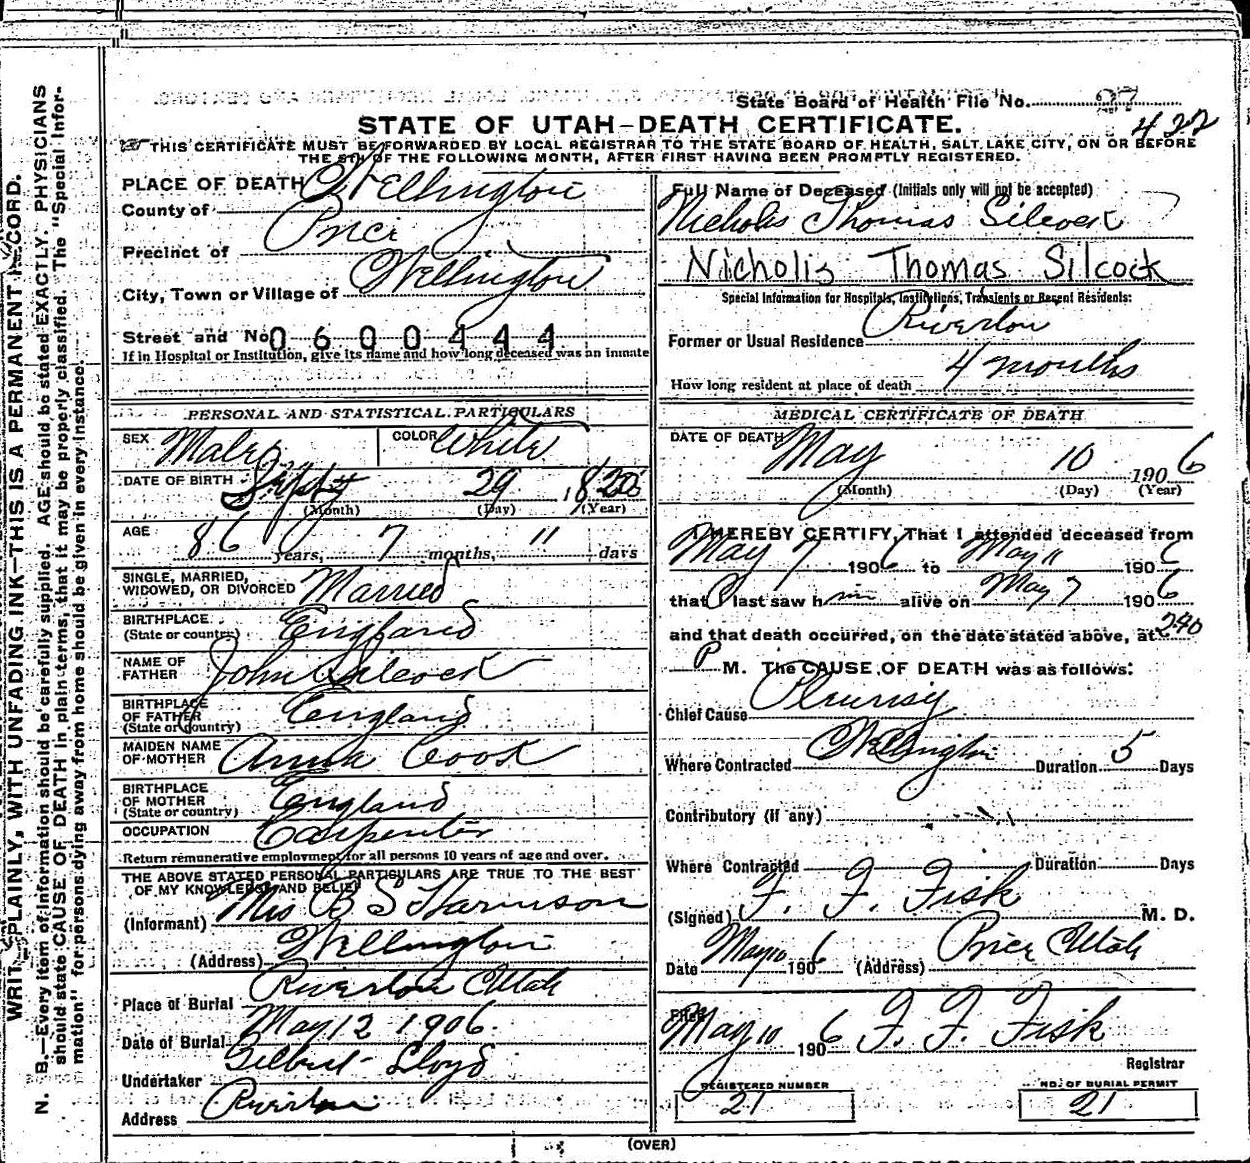 State Board of Health File No. 27
422
STATE OF UTAH—DEATH CERTIFICATE.
THIS CERTIFICATE MUST BE FORWARDED BY LOCAL REGISTRAR TO THE STATE BOARD OF HEALTH, SALT LAKE CITY, ON OR BEFORE
THE 5TH OF THE FOLLOWING MONTH, AFTER FIRST HAVING BEEN PROMPTLY REGISTERED.
WRITE PLAINLY, WITH UNFADING INK—THIS IS A PERMANENT RECORD.
N. B.—Every item of information should be carefully supplied. AGE should be stated EXACTLY. PHYSICIANS
should state CAUSE OF DEATH in plain terms, that it may be properly classified. The "Special Infor-
mation" for persons dying away from home should be given in every instance.
PLACE OF DEATH Wellington
County of
Precinct of Price
City, Town or Village of Wellington
Street and No. 0600444
If in Hospital or Institution, give its name and how long deceased was an inmate
PERSONAL AND STATISTICAL PARTICULARS
SEX Male COLOR White
DATE OF BIRTH Sept 29 1820
(Month) (Day) (Year)
AGE 86 years, 7 months, 11 days
SINGLE, MARRIED,
WIDOWED, OR DIVORCED Married
BIRTHPLACE
(State or country) England
NAME OF
FATHER John Silcock
BIRTHPLACE
OF FATHER
(State or country) England
MAIDEN NAME
OF MOTHER Anna Cook
BIRTHPLACE
OF MOTHER
(State or country) England
OCCUPATION Carpenter
Return remunerative employment for all persons 10 years of age and over.
THE ABOVE STATED PERSONAL PARTICULARS ARE TRUE TO THE BEST
OF MY KNOWLEDGE AND BELIEF
(Informant) Mrs B S Harmson
(Address) Wellington
Place of Burial Riverton Utah
Date of Burial May 12 1906.
Undertaker Gilbert Lloyd
Address Riverton
Full Name of Deceased (Initials only will not be accepted)
Nicholas Thomas Silcock
Nicholis Thomas Silcock
Special Information for Hospitals, Institutions, Transients or Recent Residents:
Former or Usual Residence Riverton
How long resident at place of death 4 months
MEDICAL CERTIFICATE OF DEATH
DATE OF DEATH May 10 1906
(Month) (Day) (Year)
I HEREBY CERTIFY, That I attended deceased from
May 7 1906 to May 11 1906
that I last saw him alive on May 7 1906
and that death occurred, on the date stated above, at 240
P M. The CAUSE OF DEATH was as follows:
Chief Cause Pleurisy
Where Contracted Wellington Duration 5 Days
Contributory (if any)
Where Contracted Duration Days
(Signed) F. F. Fisk M. D.
Date May 10 1906 (Address) Price Utah
Filed May 10 1906 F. F. Fisk
Registrar
REGISTERED NUMBER
21
NO. OF BURIAL PERMIT
21
(OVER)